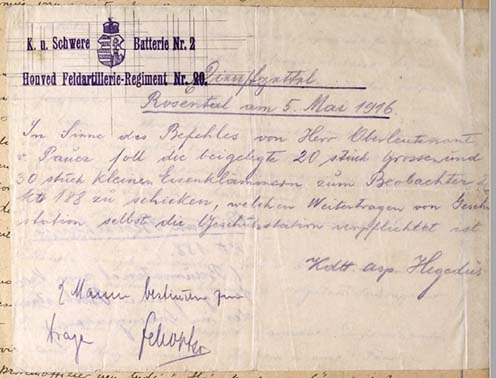 K. u. Schwere Batterie Nr. 2
Honved Feldartillerie-Regiment Nr. 20.
Dienstzettel
Rosental am 5. Mai 1916.
Im Sinne des Befehles von Herr Oberleutenant
v. Pauer soll die beigelegte 20 stück Grosse, und
30 stück kleinen Eisenklammern zum Beobachter
188 zu schicken, welchen Weitertragen von
station selbst die Geschützstation verpflichtet ist
Kdtt asp Hegedüs
2 Mann bestimmen zum